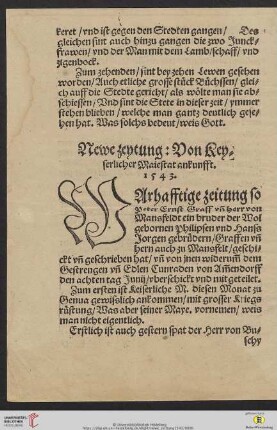 keret / vnd ist gegen den Stedten gangen / Des
gleichen sint auch hinzu gangen die zwo Junck-
frawen / vnd der Man mit dem Lamb / schaff / vnd
zigenbock.
Zum zehenden / sint bey zehen Lewen gesehen
worden / Auch etliche grosse stück Büchssen / glei-
ch auff die Stedte gericht / als wölte man sie ab-
schiessen / Vnd sint die Stete in dieser zeit / ymmer
stehen blieben / welche man gantz deutlich gese-
hen hat. Was solchs bedeut / weis Gott.
Newe zeytung: Von Key-
serlicher Maiestat ankunfft.
1543.
WArhafftige zeitung so
Peter Ernst Graff vñ herr von
Mansfeldt ein bruder der Wol
gebornen Philipsen vnd Hansz
Jorgen gebrüdern / Graffen vñ
hern auch zu Mansfelt / geschi-
ckt vñ geschrieben hat / vñ von jnen widerumb dem
Gestrengen vñ Edlen Cunraden von Amendorff
den achten tag Junij / vberschickt vnd mit geteilet.
Zum ersten ist Keiserliche M. diesen Monat zu
Genua gewislich ankommen / mit grosser Kriegs
rüstung / Was aber seiner Maye. vornemen / weis
man nicht eigentlich.
Erstlich ist auch gestern spat der Herr von Bu-
schy